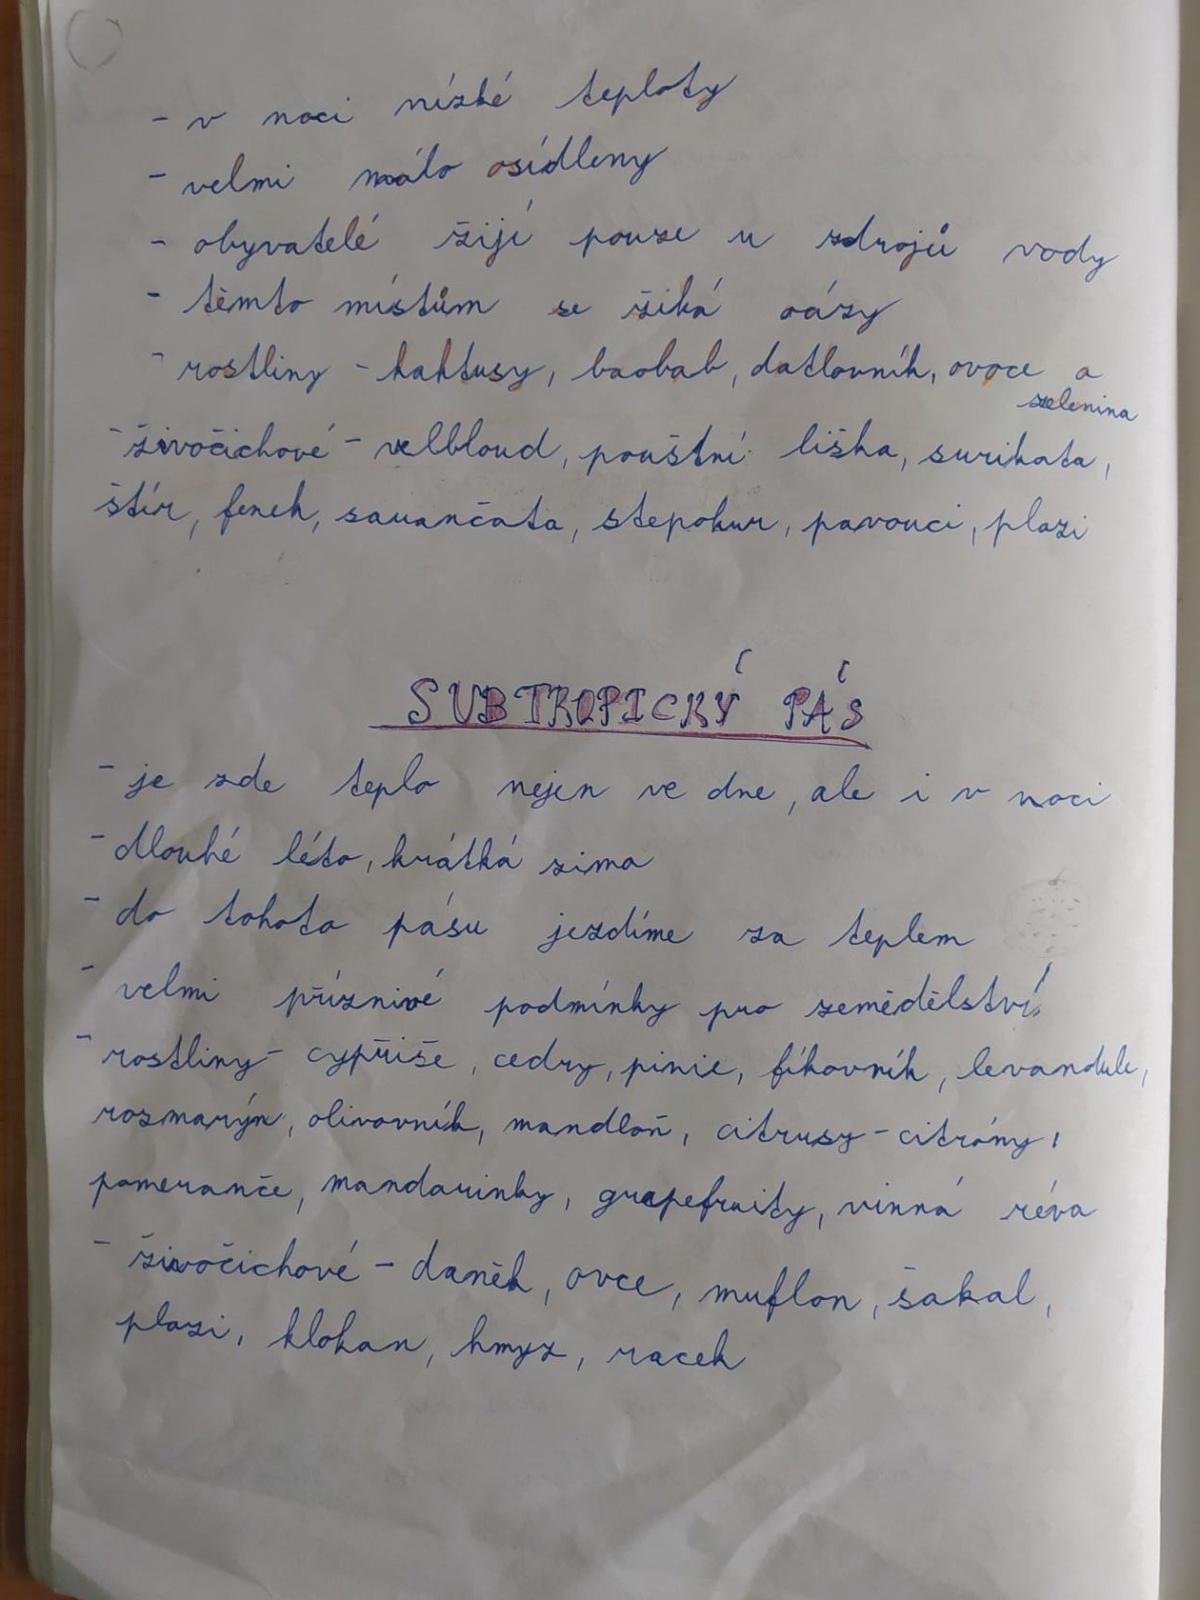 - v noci nízké teploty
- velmi málo osídleny
- obyvatelé žijí pouze u zdrojů vody
- těmto místům se žiká oázy
- rostliny - kaktusy, baobab, datlovník, ovoce a
zelenina
- živočichové - velbloud, pouštní liška, surikata,
štír, fenek, sarančata, stepokur, pavouci, plazi
SUBTROPICKÝ PÁS
- je zde teplo nejen ve dne, ale i v noci
- dlouhé léto, krátká zima
- do tohoto pásu jezdíme za teplem
- velmi příznivé podmínky pro zemědělství
- rostliny - cypřiše, cedry, pinie, fíkovník, levandule,
rozmarýn, olivovník, mandloň, citrusy - citróny,
pomeranče, mandarinky, grapefruity, vinná réva
- živočichové - daněk, ovce, muflon, šakal,
plazi, klokan, hmyz, racek